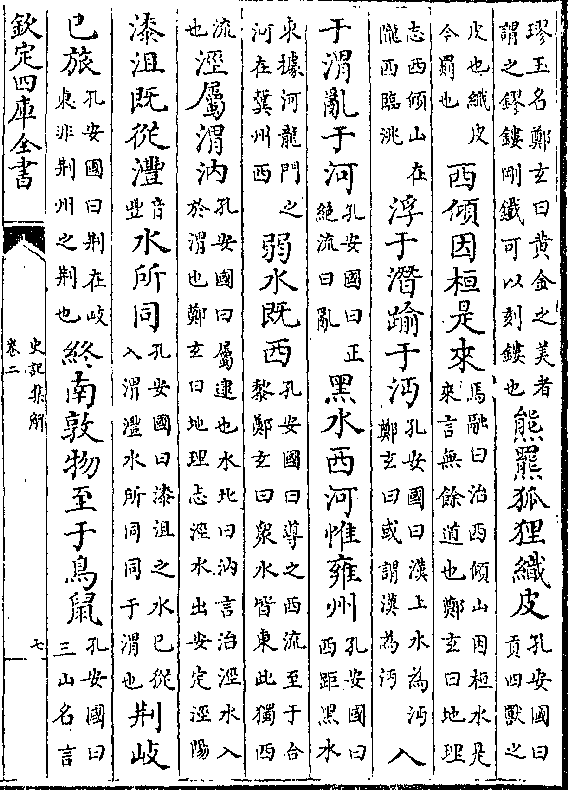 璆玉名鄭玄曰黄金之美者謂之鏐鏤剛鐵可以刻鏤也熊羆狐狸織皮孔安國曰貢四獸之
皮也織皮今罽也西傾因桓是來馬融曰治西傾山因桓水是來言無餘道也鄭玄曰地理
志西傾山在隴西臨洮浮于潛踰于沔孔安國曰漢上水為沔鄭玄曰或謂漢為沔入
于渭亂于河孔安國曰正絶流曰亂黑水西河惟雍州孔安國曰西距黑水
東據河龍門之河在冀州西弱水既西孔安國曰導之西流至于合黎鄭玄曰衆水皆東此獨西
流也涇屬渭汭孔安國曰屬逮也水北曰汭言治涇水入於渭也鄭玄曰地理志涇水出安定涇陽
漆沮既從灃音豐水所同孔安國曰漆沮之水已從入渭灃水所同同于渭也荆岐
已旅孔安國曰荆在岐東非荆州之荆也終南敦物至于鳥鼠孔安國曰三山名言
欽定四庫全書
史記集解
卷二
七